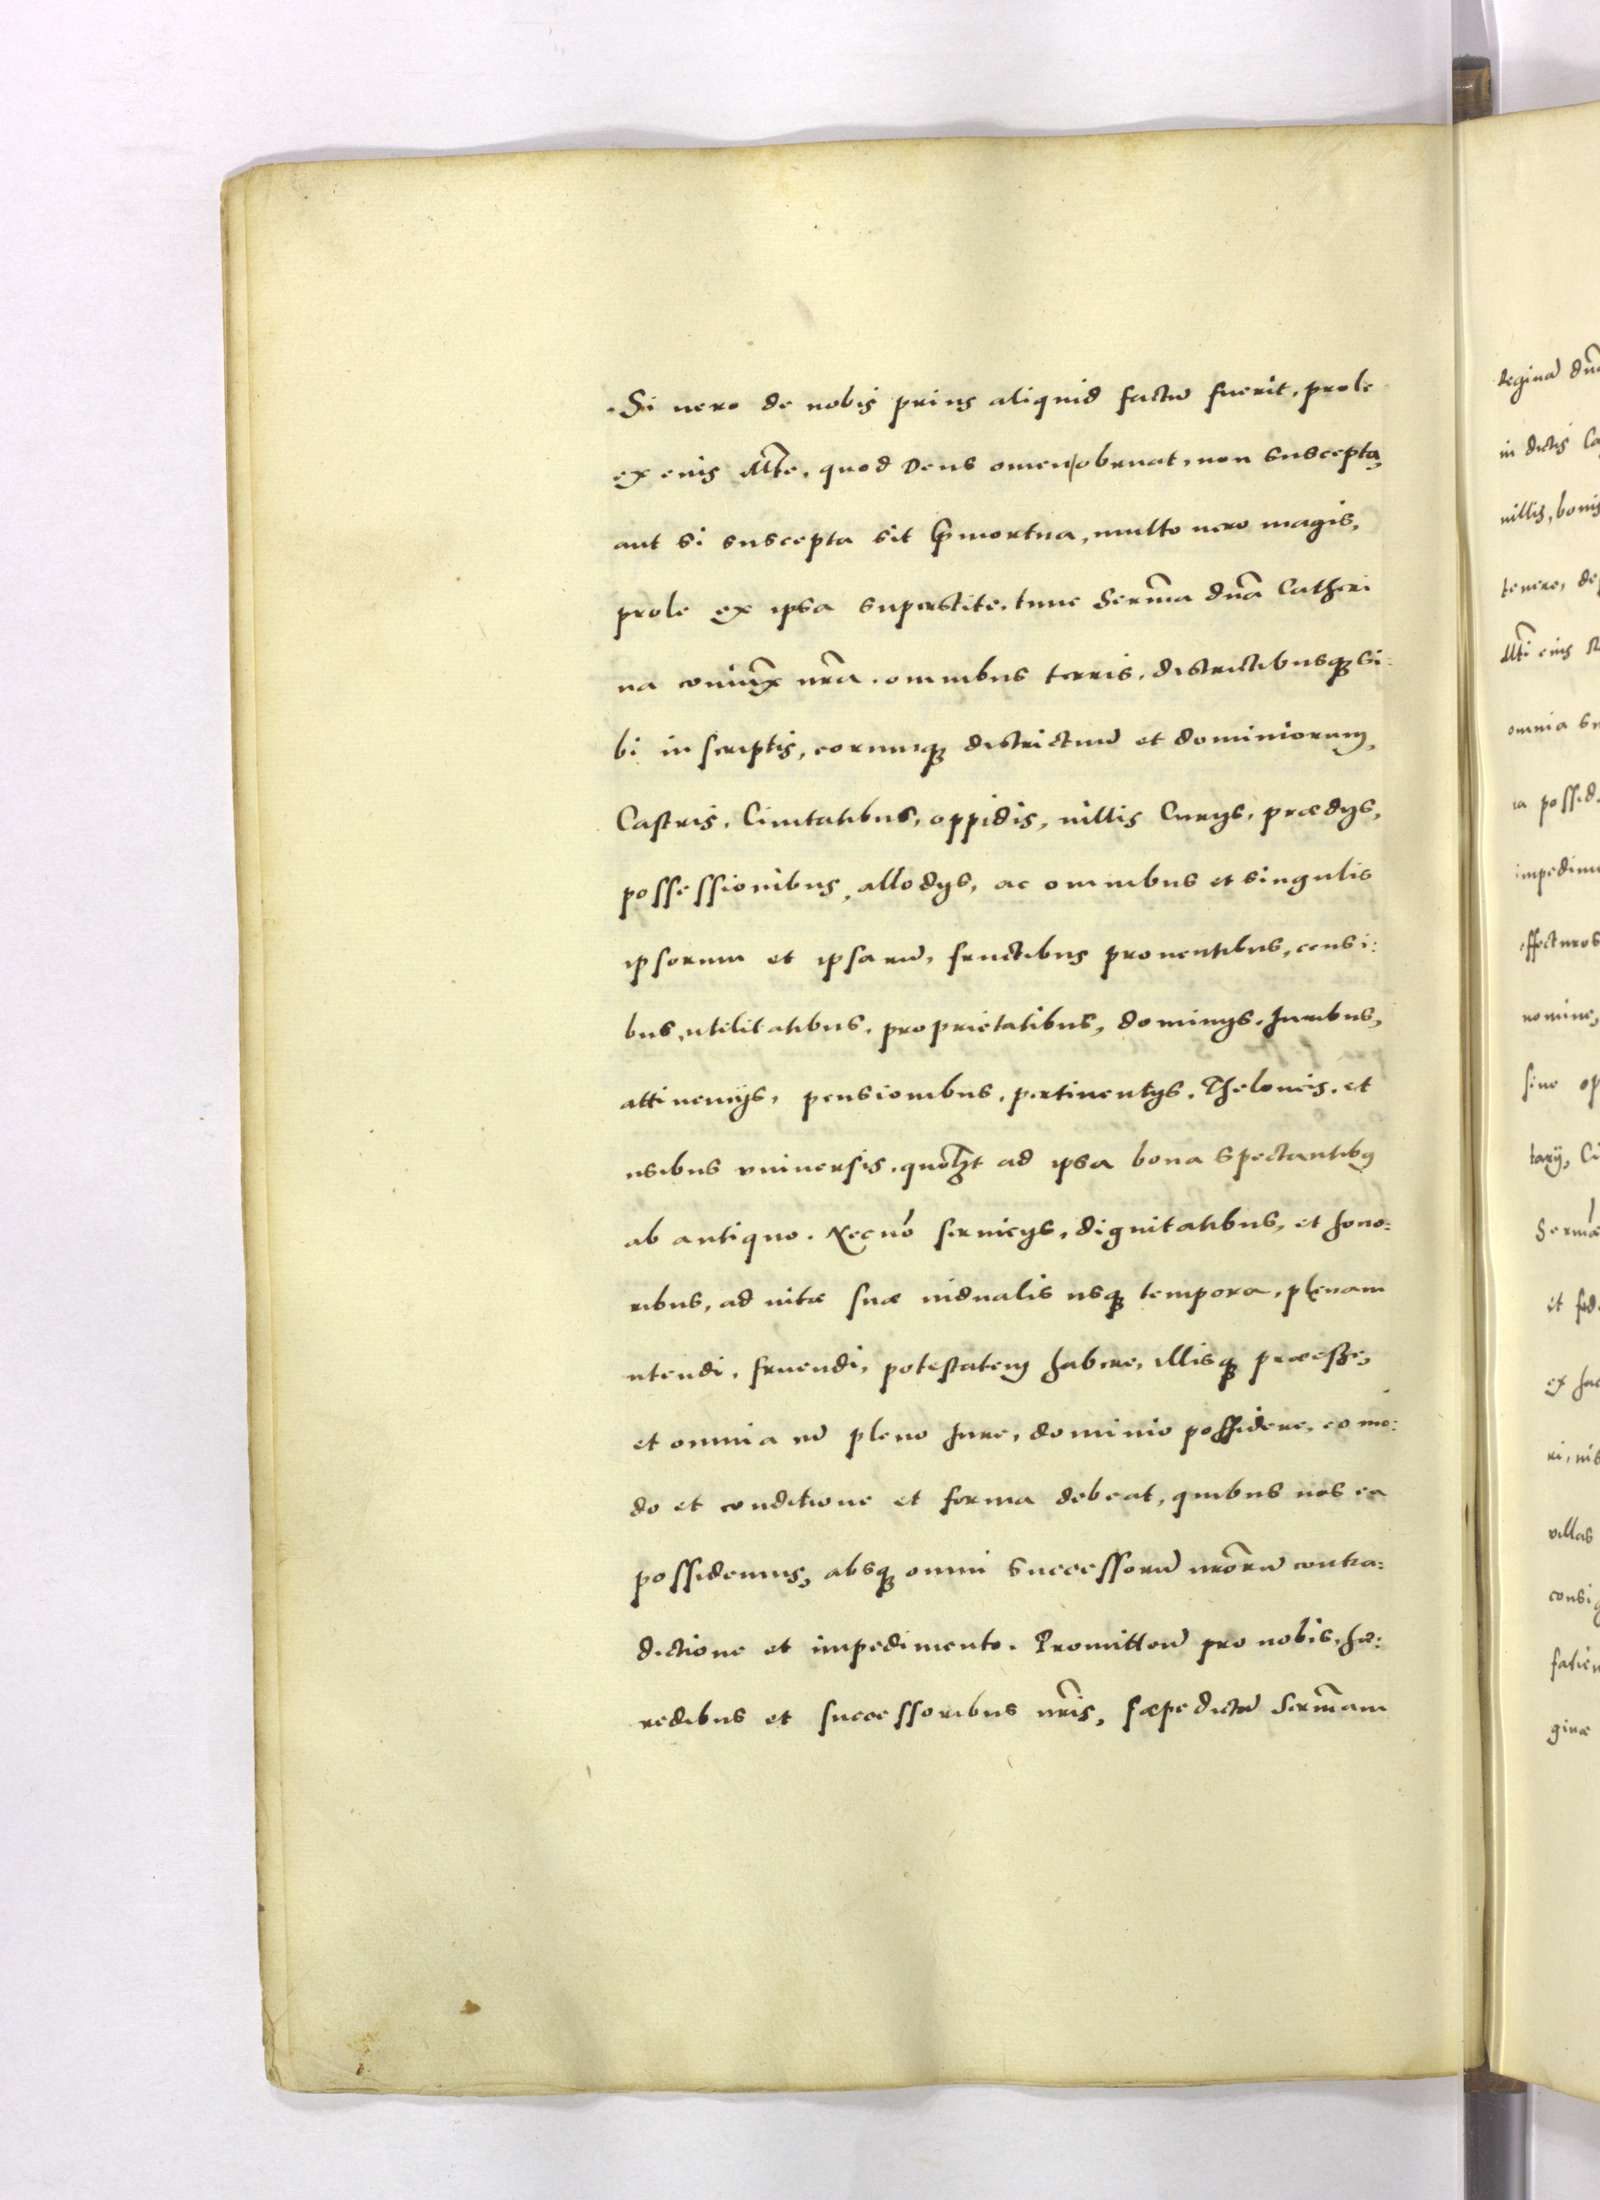 Si uero de nobis prius aliquid factū fuerit, prole
ex eius Mte, quod Deus omen obruat, non suscepta,
aut si suscepta sit p̄mortua, multo uero magis,
prole ex ipsa superstite, tunc Serm̄a dn̄a Catheri
na coniūx nr̄a, omnibus terris, districtibusq; si:
bi in scriptis, eorumq; districtuū et dominiorum,
Castris, Ciuitatibus, oppidis, uillis Curijs, prædijs,
possessionibus, allodijs, ac omnibus et singulis
ipsorum et ipsarū, fructibus prouentibus, censi:
bus, utilitatibus, proprietatibus, dominijs, Iuribus,
attinencijs, pensionibus, pertinentijs, Theloneis, et
usibus vniuersis, quol̄zt ad ipsa bona spectantibus
ab antiquo. Necnō seruicijs, dignitatibus, et hono:
ribus, ad uitæ suæ uidualis usq; tempora, plenam
utendi, fruendi, potestatem habere, illisq; præesse,
et omnia cū pleno Iure, dominio possidere, eo mo:
do et conditione et forma debeat, quibus nos ea
possidemus, absq; omni successorū nr̄orū contra:
dictione et impedimento. Promitten̄ pro nobis, hæ:
redibus et successoribus nr̄is, sæpe dictā Serm̄am
reginā dn̄
in dictis Ca
uillis, bonis
tenere, de
Mti eius
omnia
possid
impedim
effecturos
nomine,
siue op
tarij, Ci
Serm̄a
et
ex hac
ri, nis
villas
consig
ginæ